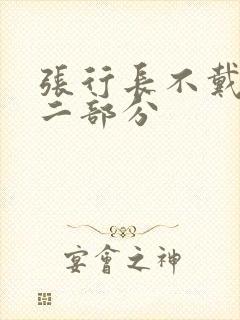 張行長不戴
二部分
宴會之神